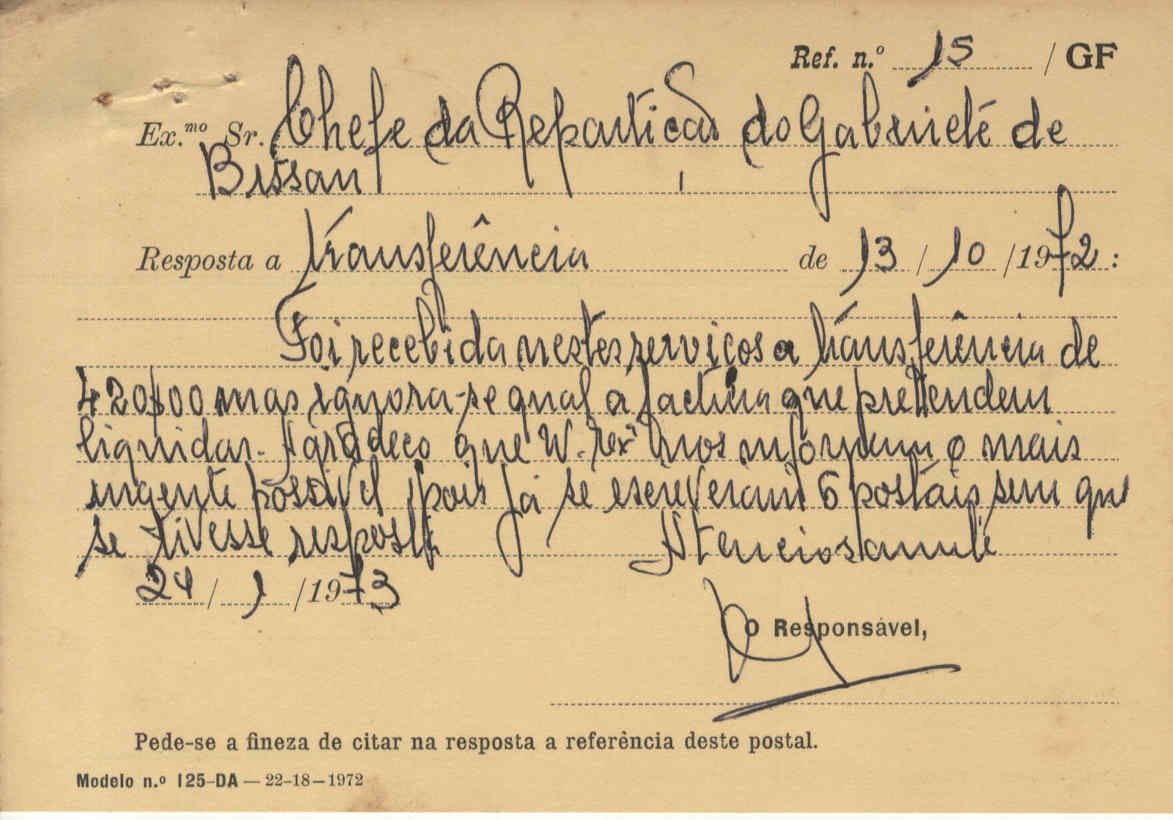 Ref. n.º 15 / GF
Ex.mo Sr. Chefe da Repartição do Gabinete de
Bissau
Resposta a transferência de 13 / 10 / 1972 :
Foi recebida nestes serviços a transferência de
420$00 mas ignora-se qual a factura que pretendem
liquidar. Agradeço que V. Exª nos informem o mais
urgente possivel pois já se escreveram 6 postais sem que
se tivesse resposta
Atenciosamente
24 / 1 / 1973
O Responsável,
Pede-se a fineza de citar na resposta a referência deste postal.
Modelo n.º 125-DA — 22-18-1972